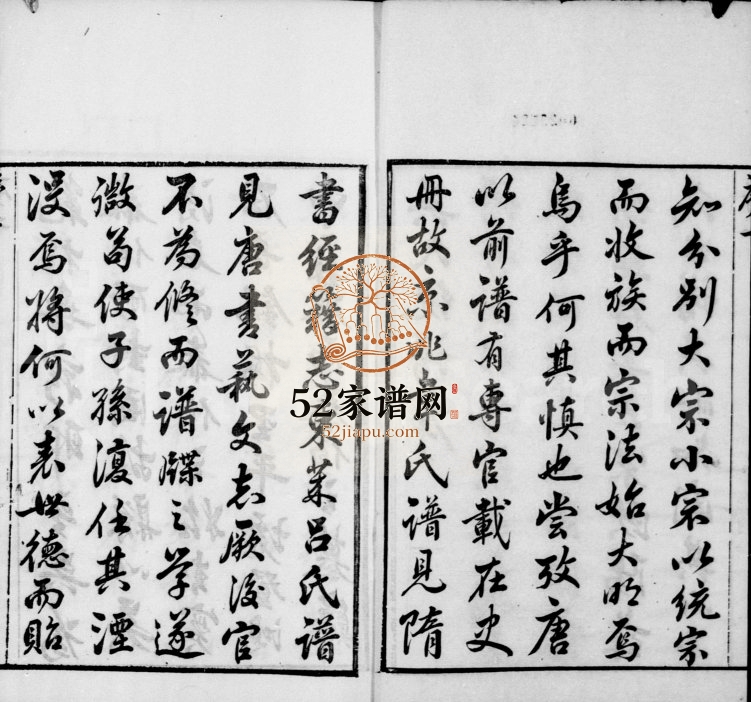 知分别大宗小宗以統宗
而收族而宗法始大明焉
烏乎何其慎也嘗攷唐
以前譜有專官載在史
冊故京兆韋氏譜見隋
書經籍志東萊呂氏譜
見唐書藝文志厥後官
不為修而譜牒之學遂
微苟使子孫復任其湮
沒焉將何以表世德而貽
52家谱网
52jiapu.com